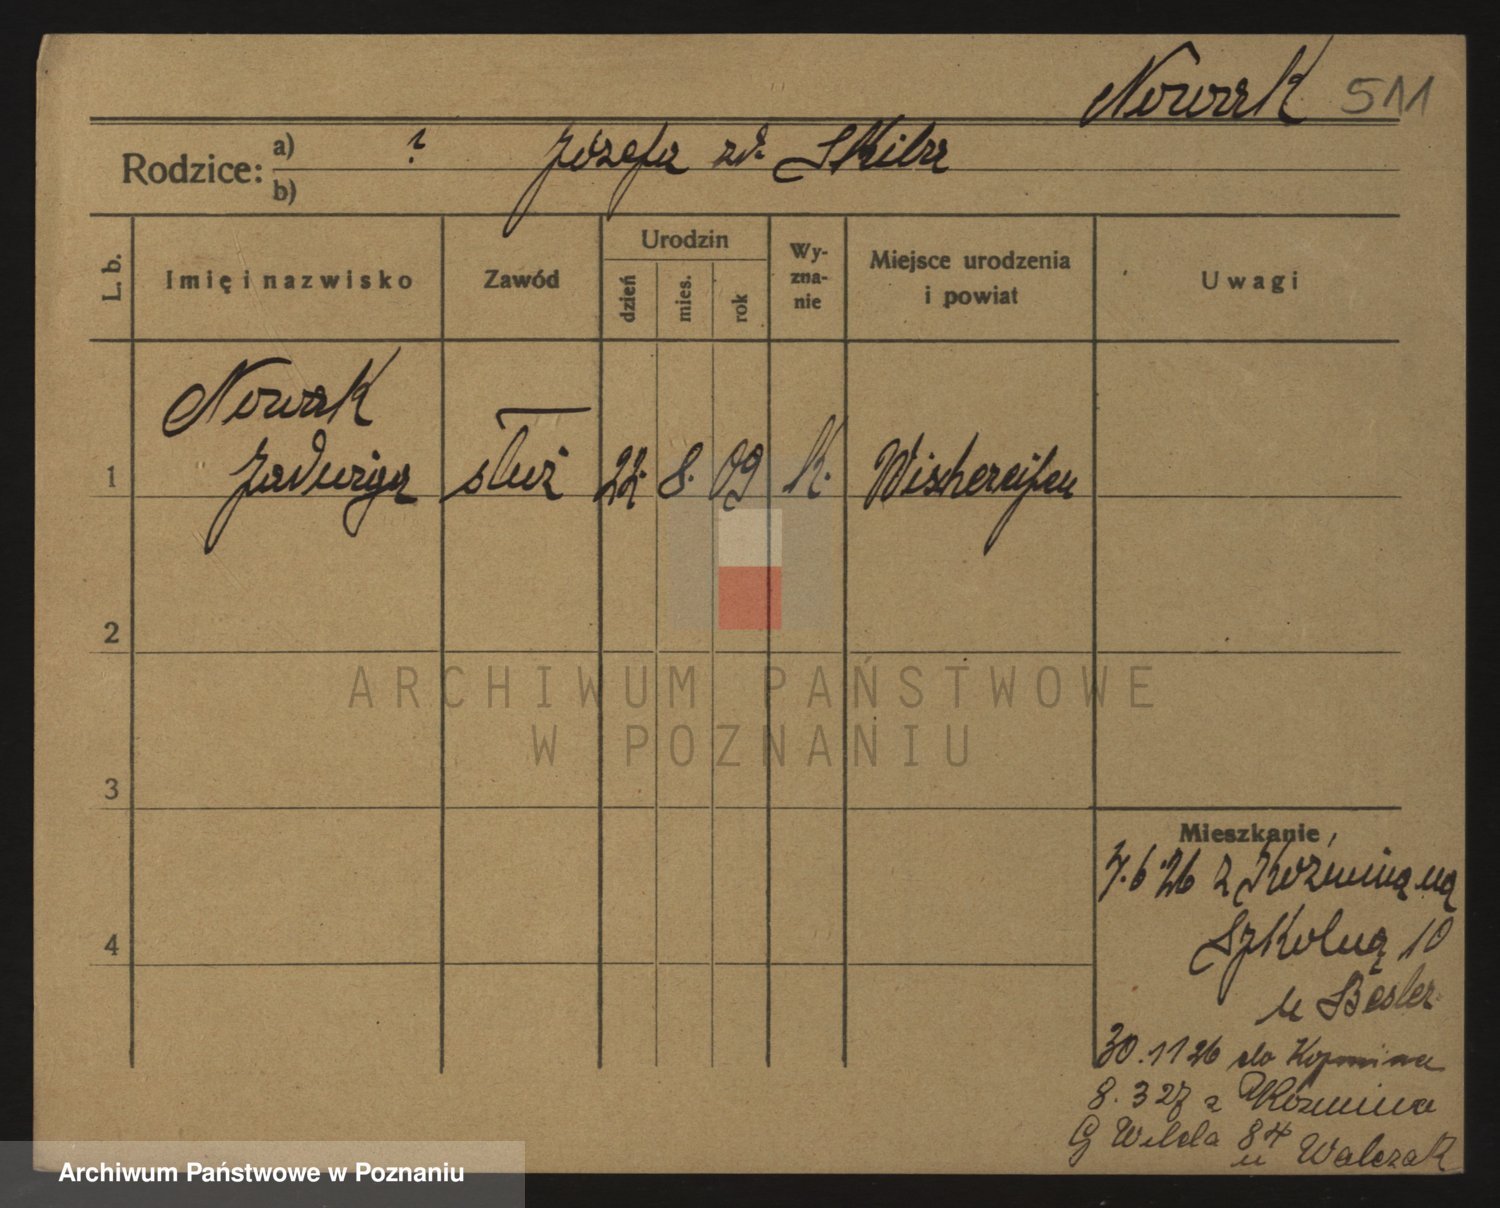 Nowak 511
Rodzice: a) ? Józefa zd. Skiba
b)
L. b.
Imię i nazwisko
Zawód
Urodzin
dzień
mies.
rok
Wy-
zna-
nie
Miejsce urodzenia
i powiat
Uwagi
Nowak
1 Jadwiga służ 22. 8. 09 k.
2
3
4
Mieszkanie
7.6.26 z Koźmina na
Szkolną 10
u Besler
30.11 26 do Kozmina
8. 3 27 z Kozmina
G Wilda 84
u Walczak
ARCHIWUM PAŃSTWOWE
W POZNANIU
Archiwum Państwowe w Poznaniu